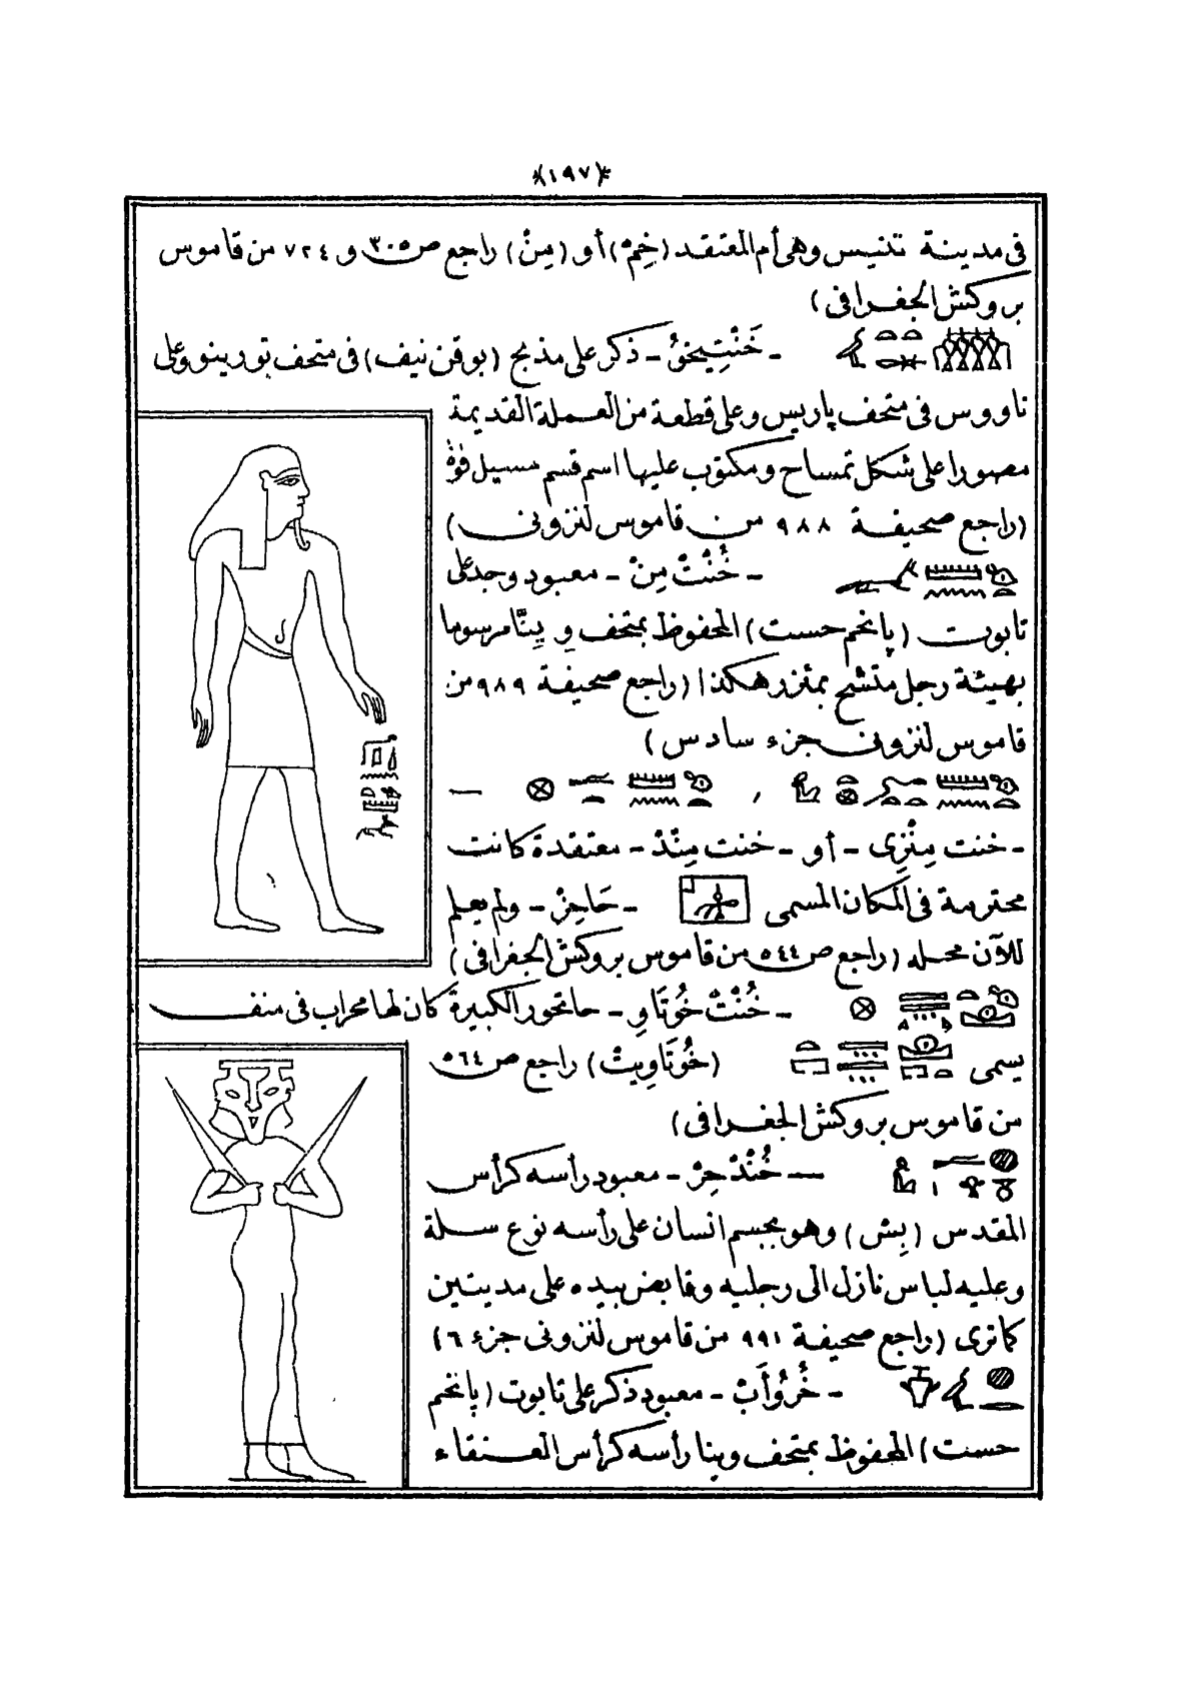 ﴿١٩٧﴾
فى مدينة تنيس وهى أم المعتقد (خِمْ) أو (مِنْ) راجع ص ٣٠٥ و ٧٢٤ من قاموس
بروكش الجغرافى)
ـ خَنْتِيخِقُ ـ ذكر على مذبح (بوقن نيف) فى متحف تورينو وعلى
ناووس فى متحف پاريس وعلى قطعة من العملة القديمة
مصورا على شكل تمساح ومكتوب عليها اسم قسم مسيل قوة
(راجع صحيفة ٩٨٨ من قاموس لنزونى)
ـ خُنْتْ مِنْ ـ معبود وجد على
تابوت (پانخم حست) المحفوظ بمتحف وِيِنَّا مرسوما
بهيئة رجل متشح بمئزر هكذا (راجع صحيفة ٩٨٩ من
قاموس لنزونى جزء سادس)
،  ـ
ـ خنت مِنْزِى ـ أو ـ خنت مِنّدْ ـ معتقدة كانت
محترمة فى المكان المسمى ـ حَاحِزْ ـ ولم يعلم
للآن محله (راجع ص ٥٤٤ من قاموس بروكش الجغرافى)
ـ خُنْتْ خُوتَاوِ ـ حاتحور الكبيرة كان لها محراب فى منف
يسمى (خُوتَاوِيتْ) راجع ص ٥٦٤
من قاموس بروكش الجغرافى)
ـ خُنْدْحِرْ ـ معبود رأسه كرأس
المقدس (بِش) وهو بجسم انسان على رأسه نوع سلة
وعليه لباس نازل الى رجليه وقابض بيده على مديتين
كاترى (راجع صحيفة ٩٩١ من قاموس لنزونى جزء ٦)
ـ خُرُوأَبْ ـ معبود ذكر على تابوت (پانخم
حست) المحفوظ بمتحف وينا رأسه كرأس العنقاء